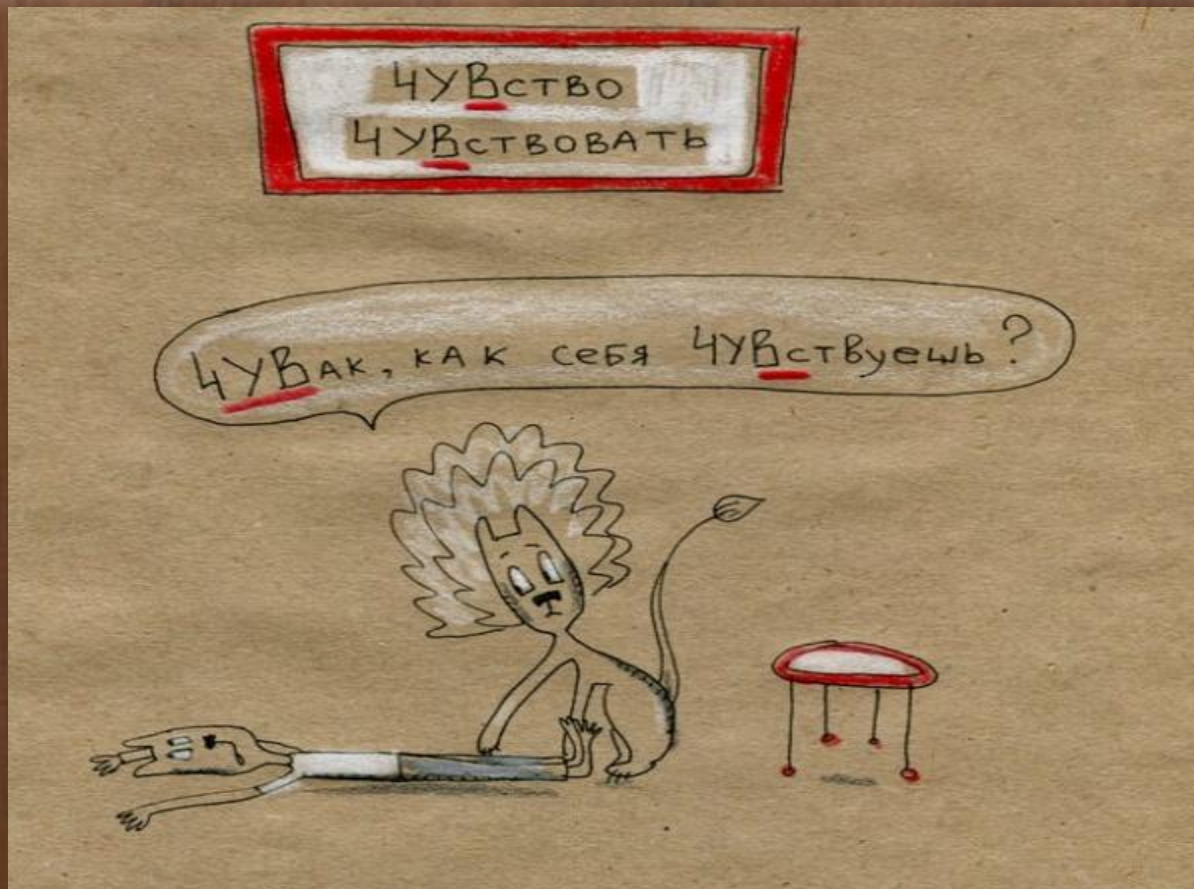 ЧУВство
ЧУВствовать
ЧУВак, как себя ЧУВствуешь?